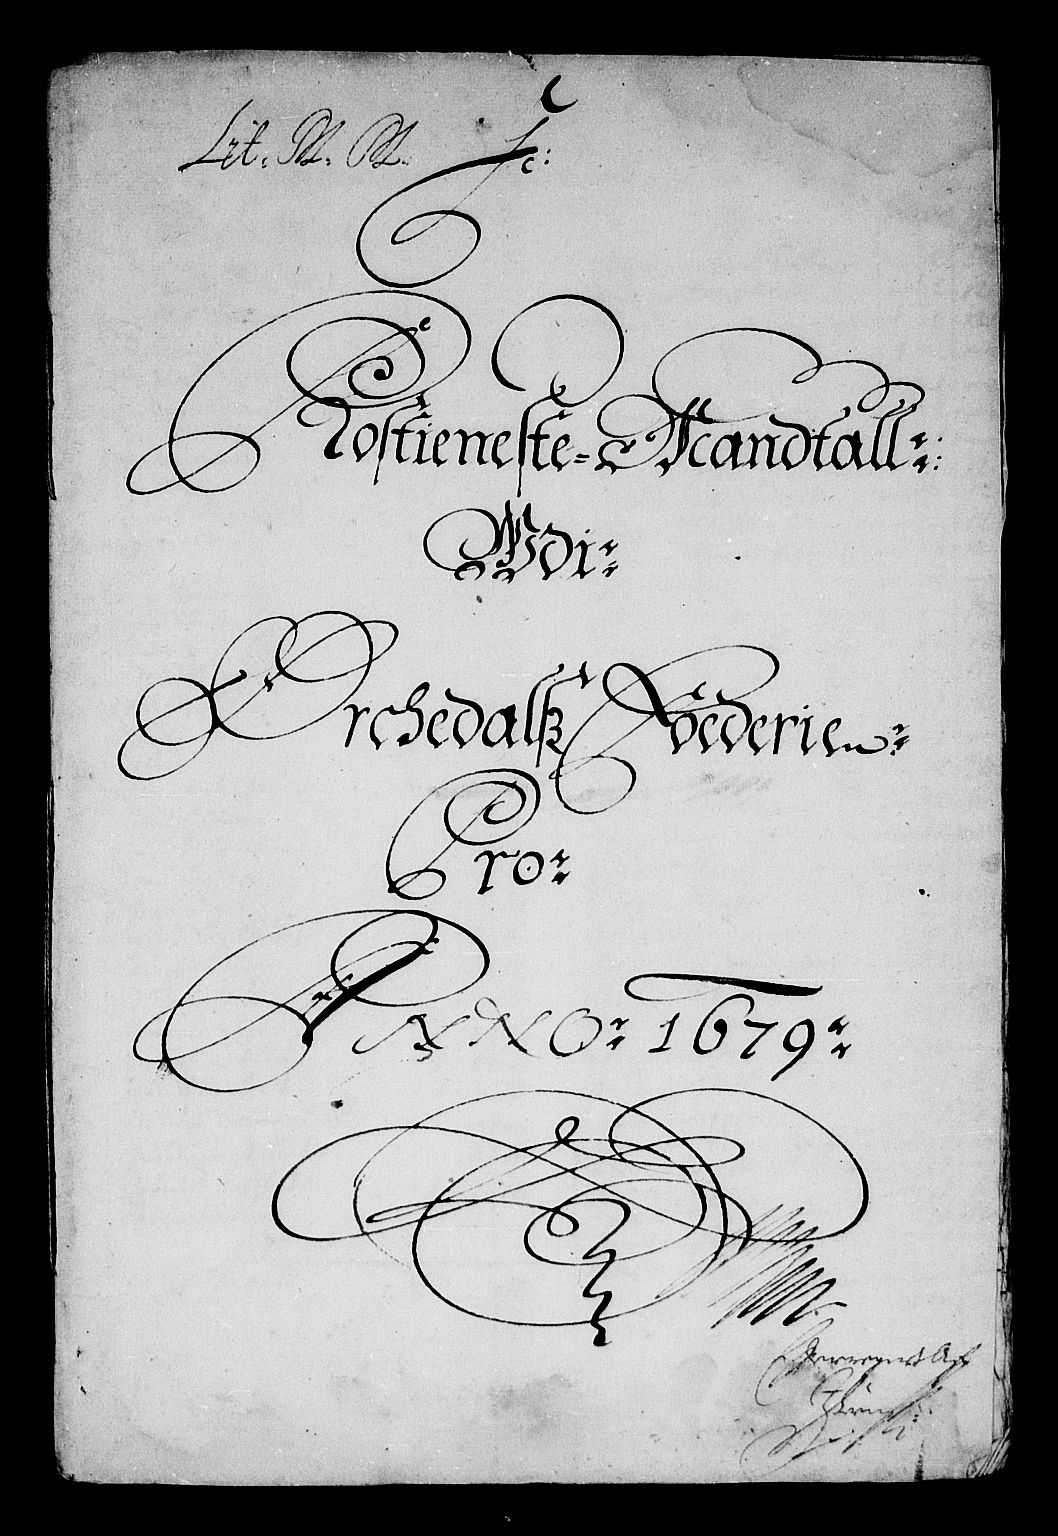 Lit. N. N.
Rostieneste-Mandtall
Udi
Orchedalsz Foederien
Pro
ANNO 1679